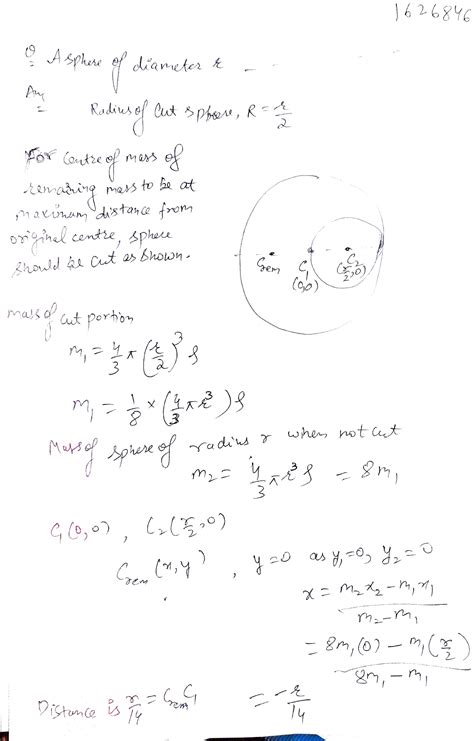 1626846
Q A sphere of diameter r - -
Ans Radius of Cut sphere, R = r/2
For Centre of mass of
remaining mass to be at
maximum distance from
original centre, sphere
should be cut as shown.
Crem C1 (0,0) C2 (r/2,0)
mass of cut portion
m1 = 4/3 π (r/2)^3 ρ
m1 = 1/8 × (4/3 π r^3) ρ
Mass of sphere of radius r when not cut
m2 = 4/3 π r^3 ρ = 8m1
C1(0,0), C2(r/2,0)
Crem (x,y), y=0 as y1=0, y2=0
x = (m2x2 - m1x1)/(m2-m1)
= (8m1(0) - m1(r/2))/(8m1-m1)
= -r/14
Distance is r/14 = CremC1